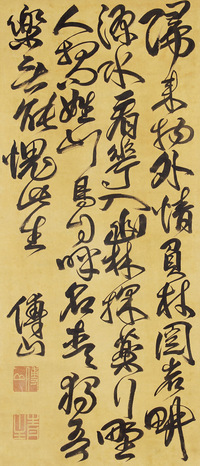 歸來物外情負杖閱岩畊
源水看花入幽林採藥行野
人相問姓山鳥自呼名去去獨吾
樂无能愧此生
傅山